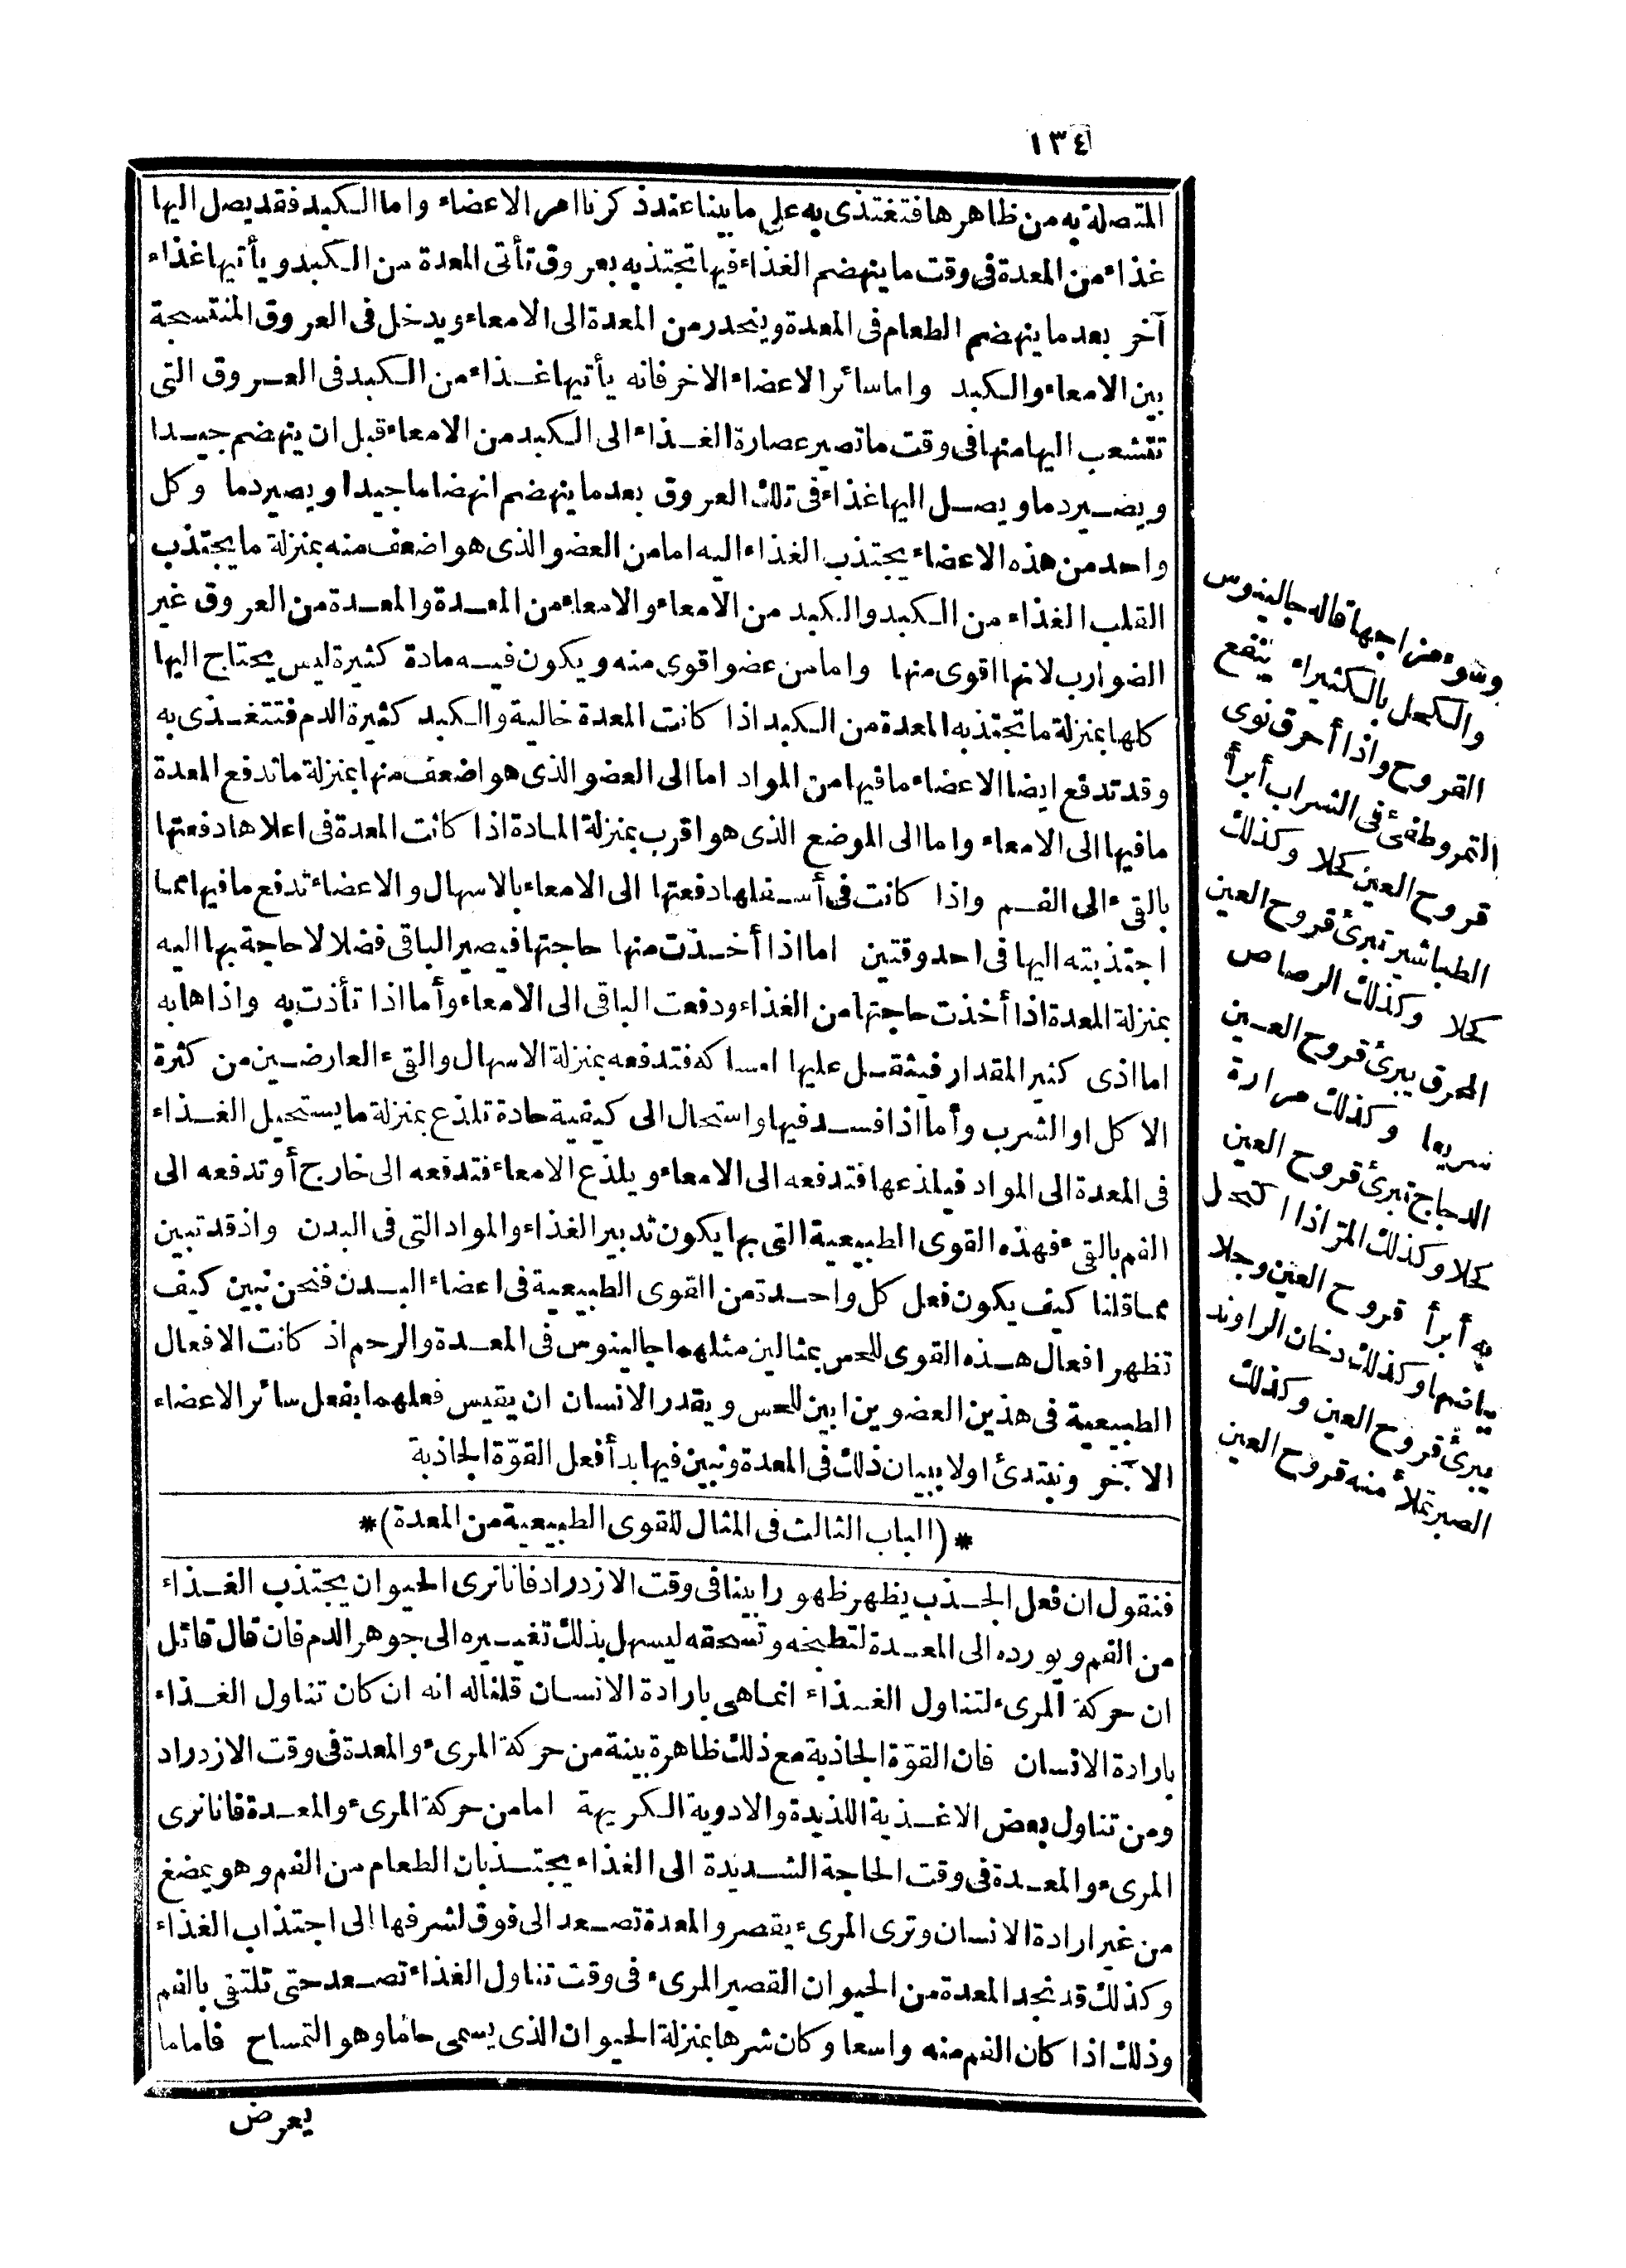 ١٣٤
المتصلة به من ظاهرها فتغتذى به على ما بينا عند ذكرنا امر الاعضاء واما الكبد فقد يصل اليها
غذاء من المعدة فى وقت ما ينهضم الغذاء فيها تجتذبه بعروق تأتى المعدة من الكبد ويأتيها غذاء
آخر بعد ما ينهضم الطعام فى المعدة وينحدر من المعدة الى الامعاء ويدخل فى العروق المنتسجة
بين الامعاء والكبد واما سائر الاعضاء الاخر فانه يأتيها غذاء من الكبد فى العروق التى
تتشعب اليها منها فى وقت ما تصير عصارة الغذاء الى الكبد من الامعاء قبل ان ينهضم جيدا
ويصير دما ويصل اليها غذاء فى تلك العروق بعد ما ينهضم انهضاما جيدا ويصير دما وكل
واحد من هذه الاعضاء يجتذب الغذاء اليه اما من العضو الذى هو اضعف منه بمنزلة ما يجتذب
القلب الغذاء من الكبد والكبد من الامعاء والامعاء من المعدة والمعدة من العروق غير
الضوارب لانها اقوى منها واما من عضو اقوى منه ويكون فيه مادة كثيرة ليس يحتاج اليها
كلها بمنزلة ما تجتذبه المعدة من الكبد اذا كانت المعدة خالية والكبد كثيرة الدم فتتغذى به
وقد تدفع ايضا الاعضاء ما فيها من المواد اما الى العضو الذى هو اضعف منها بمنزلة ما تدفع المعدة
ما فيها الى الامعاء واما الى الموضع الذى هو اقرب بمنزلة المادة اذا كانت المعدة فى اعلاها دفعتها
بالقىء الى الفم واذا كانت فى أسفلها دفعتها الى الامعاء بالاسهال والاعضاء تدفع ما فيها مما
اجتذبته اليها فى احد وقتين اما اذا أخذت منها حاجتها فيصير الباقى فضلا لا حاجة بها اليه
بمنزلة المعدة اذا أخذت حاجتها من الغذاء ودفعت الباقى الى الامعاء وأما اذا تأذت به واذاها به
اما اذى كثير المقدار فيثقل عليها امساكه فتدفعه بمنزلة الاسهال والقىء العارضين من كثرة
الاكل او الشرب وأما اذا فسد فيها واستحال الى كيفية حادة تلذع بمنزلة ما يستحيل الغذاء
فى المعدة الى المواد فيلذعها فتدفعه الى الامعاء ويلذع الامعاء فتدفعه الى خارج أو تدفعه الى
الفم بالقىء فهذه القوى الطبيعية التى بها يكون تدبير الغذاء والمواد التى فى البدن واذ قد تبين
مما قلنا كيف يكون فعل كل واحدة من القوى الطبيعية فى اعضاء البدن فنحن نبين كيف
تظهر افعال هذه القوى للحس بمثالين مثلهما جالينوس فى المعدة والرحم اذ كانت الافعال
الطبيعية فى هذين العضوين ابين للحس ويقدر الانسان ان يقيس فعلهما بفعل سائر الاعضاء
الآخر ونبتدئ اولا ببيان ذلك فى المعدة ونبين فيها بدأ فعل القوّة الجاذبة
*(الباب الثالث فى المثال للقوى الطبيعية من المعدة)*
فنقول ان فعل الجذب يظهر ظهورا بينا فى وقت الازدراد فانا نرى الحيوان يجتذب الغذاء
من الفم ويورده الى المعدة لتطبخه وتسحقه ليسهل بذلك تغييره الى جوهر الدم فان قال قائل
ان حركة المرىء لتناول الغذاء انما هى بارادة الانسان قلنا له انه ان كان تناول الغذاء
بارادة الانسان فان القوّة الجاذبة مع ذلك ظاهرة بينة من حركة المرىء والمعدة فى وقت الازدراد
ومن تناول بعض الاغذية اللذيذة والادوية الكريهة اما من حركة المرىء والمعدة فانا نرى
المرىء والمعدة فى وقت الحاجة الشديدة الى الغذاء يجتذبان الطعام من الفم وهو يمضغ
من غير ارادة الانسان وترى المرىء يقصر والمعدة تصعد الى فوق لشرفها الى اجتذاب الغذاء
وكذلك قد نجد المعدة من الحيوان القصير المرىء فى وقت تناول الغذاء تصعد حتى تلتقى بالفم
وذلك اذا كان الفم منه واسعا وكان شرها بمنزلة الحيوان الذى يسمى حاما وهو التمساح فاما ما
يعرض
وسوء مزاجها قاله جالينوس
والكحل بالكثيراء ينفع
القروح واذا أحرق نوى
التمر وطفئ فى الشراب أبرأ
قروح العين كحلا وكذلك
الطباشير تبرئ قروح العين
كحلا وكذلك الرصاص
المحرق يبرئ قروح العين
سريعا وكذلك مرارة
الدجاج تبرئ قروح العين
كحلا وكذلك المر اذا اكتحل
به أبرأ قروح العين وجلا
بياضها وكذلك دخان الراوند
يبرئ قروح العين وكذلك
الصبر تملأ منه قروح العين